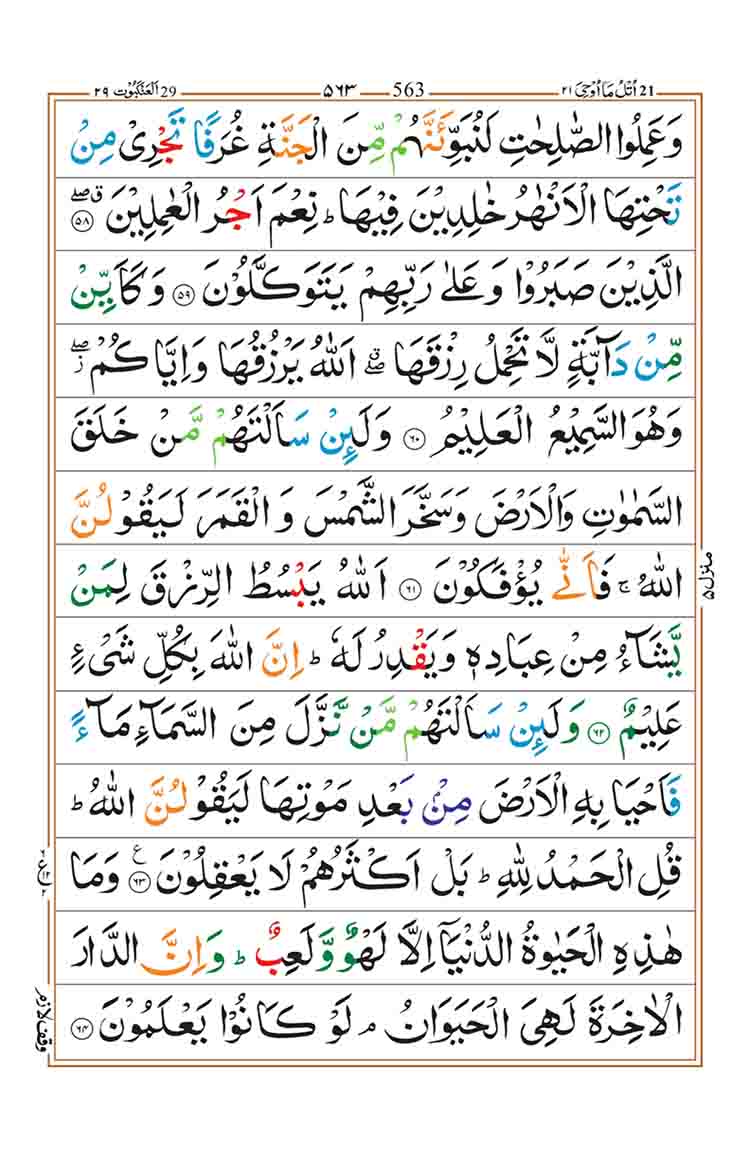 21 اُتْلُ مَا اُوْحِیَ ٢١
563 ٥٦٣
29 اَلْعَنْكَبُوْت ٢٩
وَعَمِلُوا الصّٰلِحٰتِ لَنُبَوِّئَنَّهُمْ مِّنَ الْجَنَّةِ غُرَفًا تَجْرِیْ مِنْ
تَحْتِهَا الْاَنْهٰرُ خٰلِدِیْنَ فِیْهَا ؕ نِعْمَ اَجْرُ الْعٰمِلِیْنَ ۗۖ ﴿٥٨﴾
الَّذِیْنَ صَبَرُوْا وَعَلٰی رَبِّهِمْ یَتَوَكَّلُوْنَ ﴿٥٩﴾ وَكَاَیِّنْ
مِّنْ دَآبَّةٍ لَّا تَحْمِلُ رِزْقَهَا ۗۖ اَللّٰهُ یَرْزُقُهَا وَاِیَّاكُمْ ۖؗ
وَهُوَ السَّمِیْعُ الْعَلِیْمُ ﴿٦٠﴾ وَلَىِٕنْ سَاَلْتَهُمْ مَّنْ خَلَقَ
السَّمٰوٰتِ وَالْاَرْضَ وَسَخَّرَ الشَّمْسَ وَ الْقَمَرَ لَیَقُوْلُنَّ
اللّٰهُ ۚ فَاَنّٰی یُؤْفَكُوْنَ ﴿٦١﴾ اَللّٰهُ یَبْسُطُ الرِّزْقَ لِمَنْ
یَّشَآءُ مِنْ عِبَادِهٖ وَیَقْدِرُ لَهٗ ؕ اِنَّ اللّٰهَ بِكُلِّ شَیْءٍ
عَلِیْمٌ ﴿٦٢﴾ وَلَىِٕنْ سَاَلْتَهُمْ مَّنْ نَّزَّلَ مِنَ السَّمَآءِ مَآءً
فَاَحْیَا بِهِ الْاَرْضَ مِنْۢ بَعْدِ مَوْتِهَا لَیَقُوْلُنَّ اللّٰهُ ؕ
قُلِ الْحَمْدُ لِلّٰهِ ؕ بَلْ اَكْثَرُهُمْ لَا یَعْقِلُوْنَ ﴿٦٣﴾ ع وَمَا
هٰذِهِ الْحَیٰوةُ الدُّنْیَاۤ اِلَّا لَهْوٌ وَّلَعِبٌ ؕ وَاِنَّ الدَّارَ
الْاٰخِرَةَ لَهِیَ الْحَیَوَانُ ۘ لَوْ كَانُوْا یَعْلَمُوْنَ ﴿٦٤﴾
منزل ٥
وقف لازم